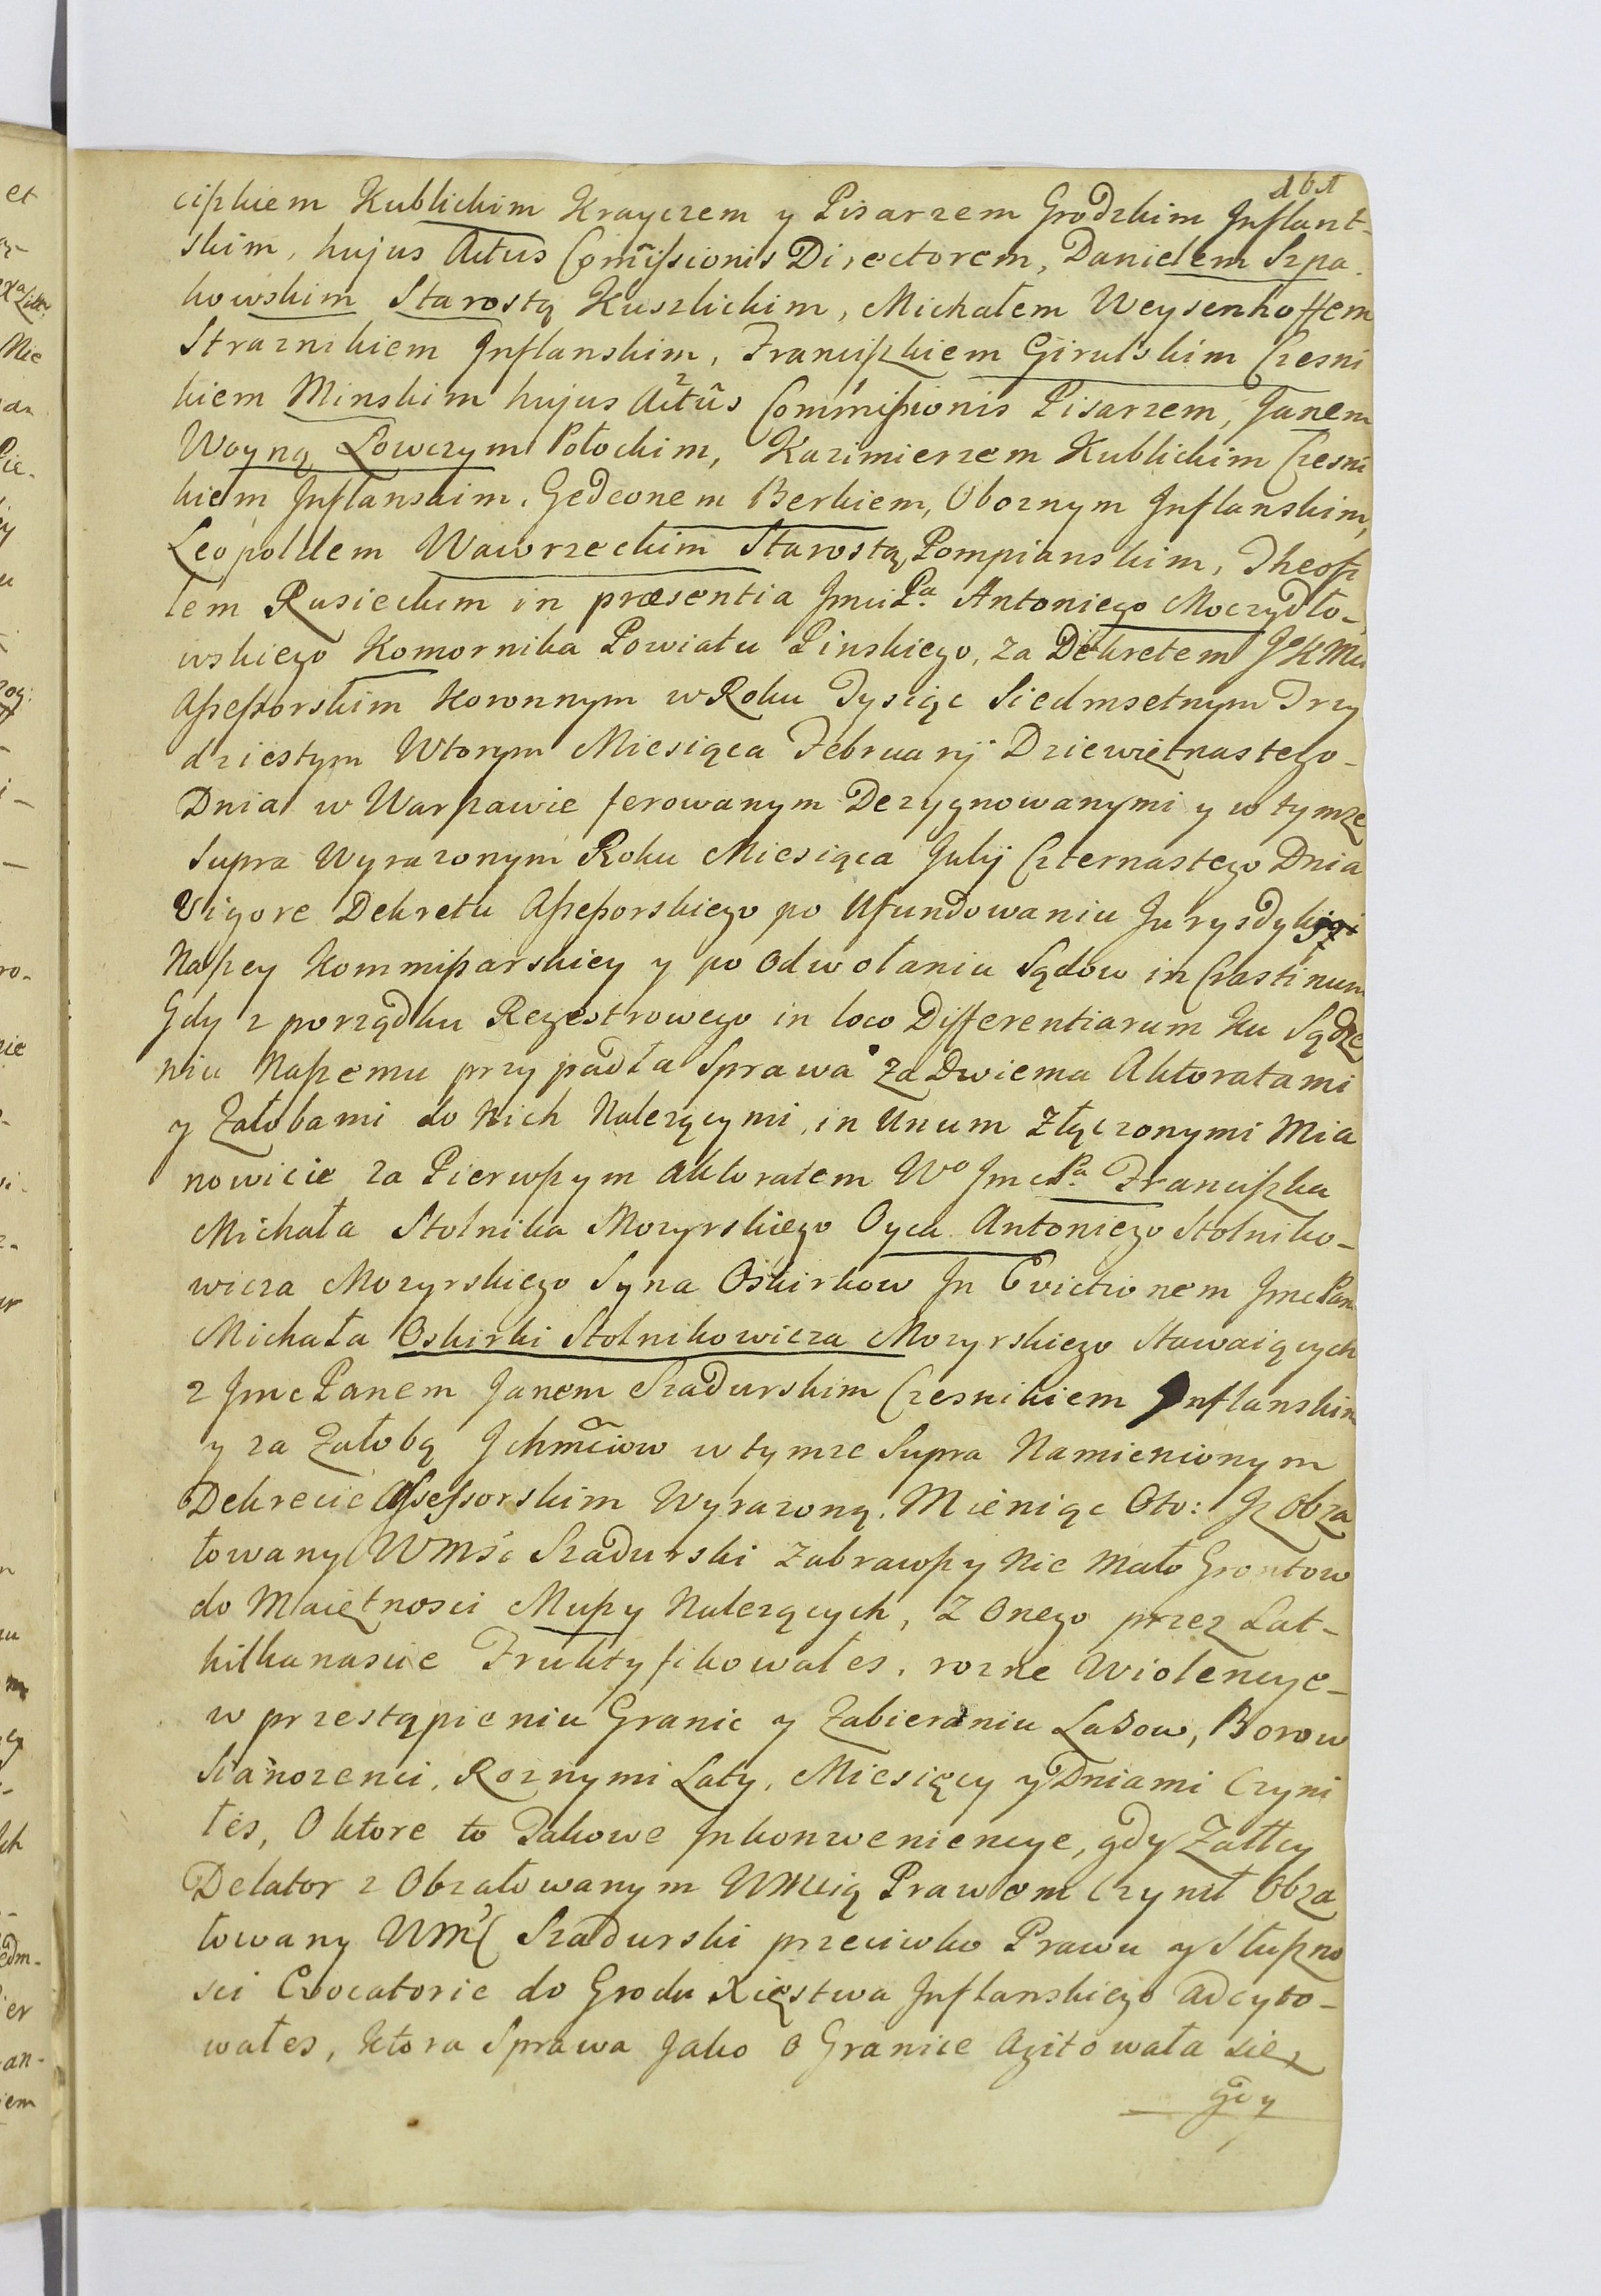 ciszkiem Kublickim Krayczem y Pisarzem Grodzkim Inflant-
skim, hujus Actus Com̃issionis Directorem, Danielem Szpa-
kowskim Starostą Kuszlickim, Michałem Weysenhoffem
Straznikiem Inflanskim, Franciszkiem Girulskim Czesni
kiem Minskim hujus Actũs Commissionis Pisarzem, Janem
Woyną Łowczym Połockim, Kazimierzem Kublickim Czesni
kiem Inflanskim, Gedeonem Berkiem, Oboznym Inflanskim,
Leopoldem Wawrzeckim Starostą Pompianskim,
lem Rusieckim in præsentia Jmci Pa Antoniego Moczydło-
wskiego Komornika Powiatu Pinskiego, za Dekretem JoKMci
Assessorskim Koronnym w Roku Tysiąc Siedmsetnym Trzy
dziestym Wtorym Miesiąca Februarij Dziewiętnastego-
Dnia w Warszawie ferowanym Dezygnowanymi y w tymze
supra Wyrazonym Roku Miesiąca Julij Czternastego Dnia
Vigore Dekretu Assessorskiego po Ufundowaniu
Naszey Kommissarskiey y po Odwołaniu Sądow in Crastinum
Gdy z porządku Regestrowego in loco Differentiarum Ku Sądze
niu Naszemu przypadła Sprawa za Dwiema Aktoratami
y Załobami do Nich Nalezącymi, in Unum Złączonymi Mia
nowicie za Pierwszym Aktoratem Wo Jmc Pa Franciszka
Michała Stolnika Mozyrskiego Oyca Antoniego Stolniko-
wicza Mozyrskiego Syna Oskirkow In Evictionem Jmc Pan
Michała Oskirki Stolnikowicza Mozyrskiego Stawaiących
z Jmc Panem Janem Szadurskim Czesnikiem Inflanskim
y za Załobą Ichmc̃iow w tymze Supra Namienionym
Dekrecie Assessorskim Wyrazoną. Mieniąc Oto: Iz Obza
łowany WMsc Szadurski Zabrawszy Nie Mało Grontow
do Maiętnosci Muszy Nalezących, Z Onego przez Lat-
kilkanascie Fruktyfikowałes, rozne Wiolencye-
w przestąpieniu Granic y Zabieraniu Lasow, Borow
Sianozenci, Roznymi Laty, Miesięcy y Dniami Czyni
łes, O ktore to Takowe Inkonwieniencye, gdy Załłcy
Delator z Obzałowanym WMcią Prawem Czynił Obza
łowany WMC Szadurski przeciwko Prawu y Słuszno
sci Evocatorie do Grodu Xięstwa Inflanskiego adcyto-
wałes, Ktora Sprawa Jako o Granice Agitowała się,
gdy